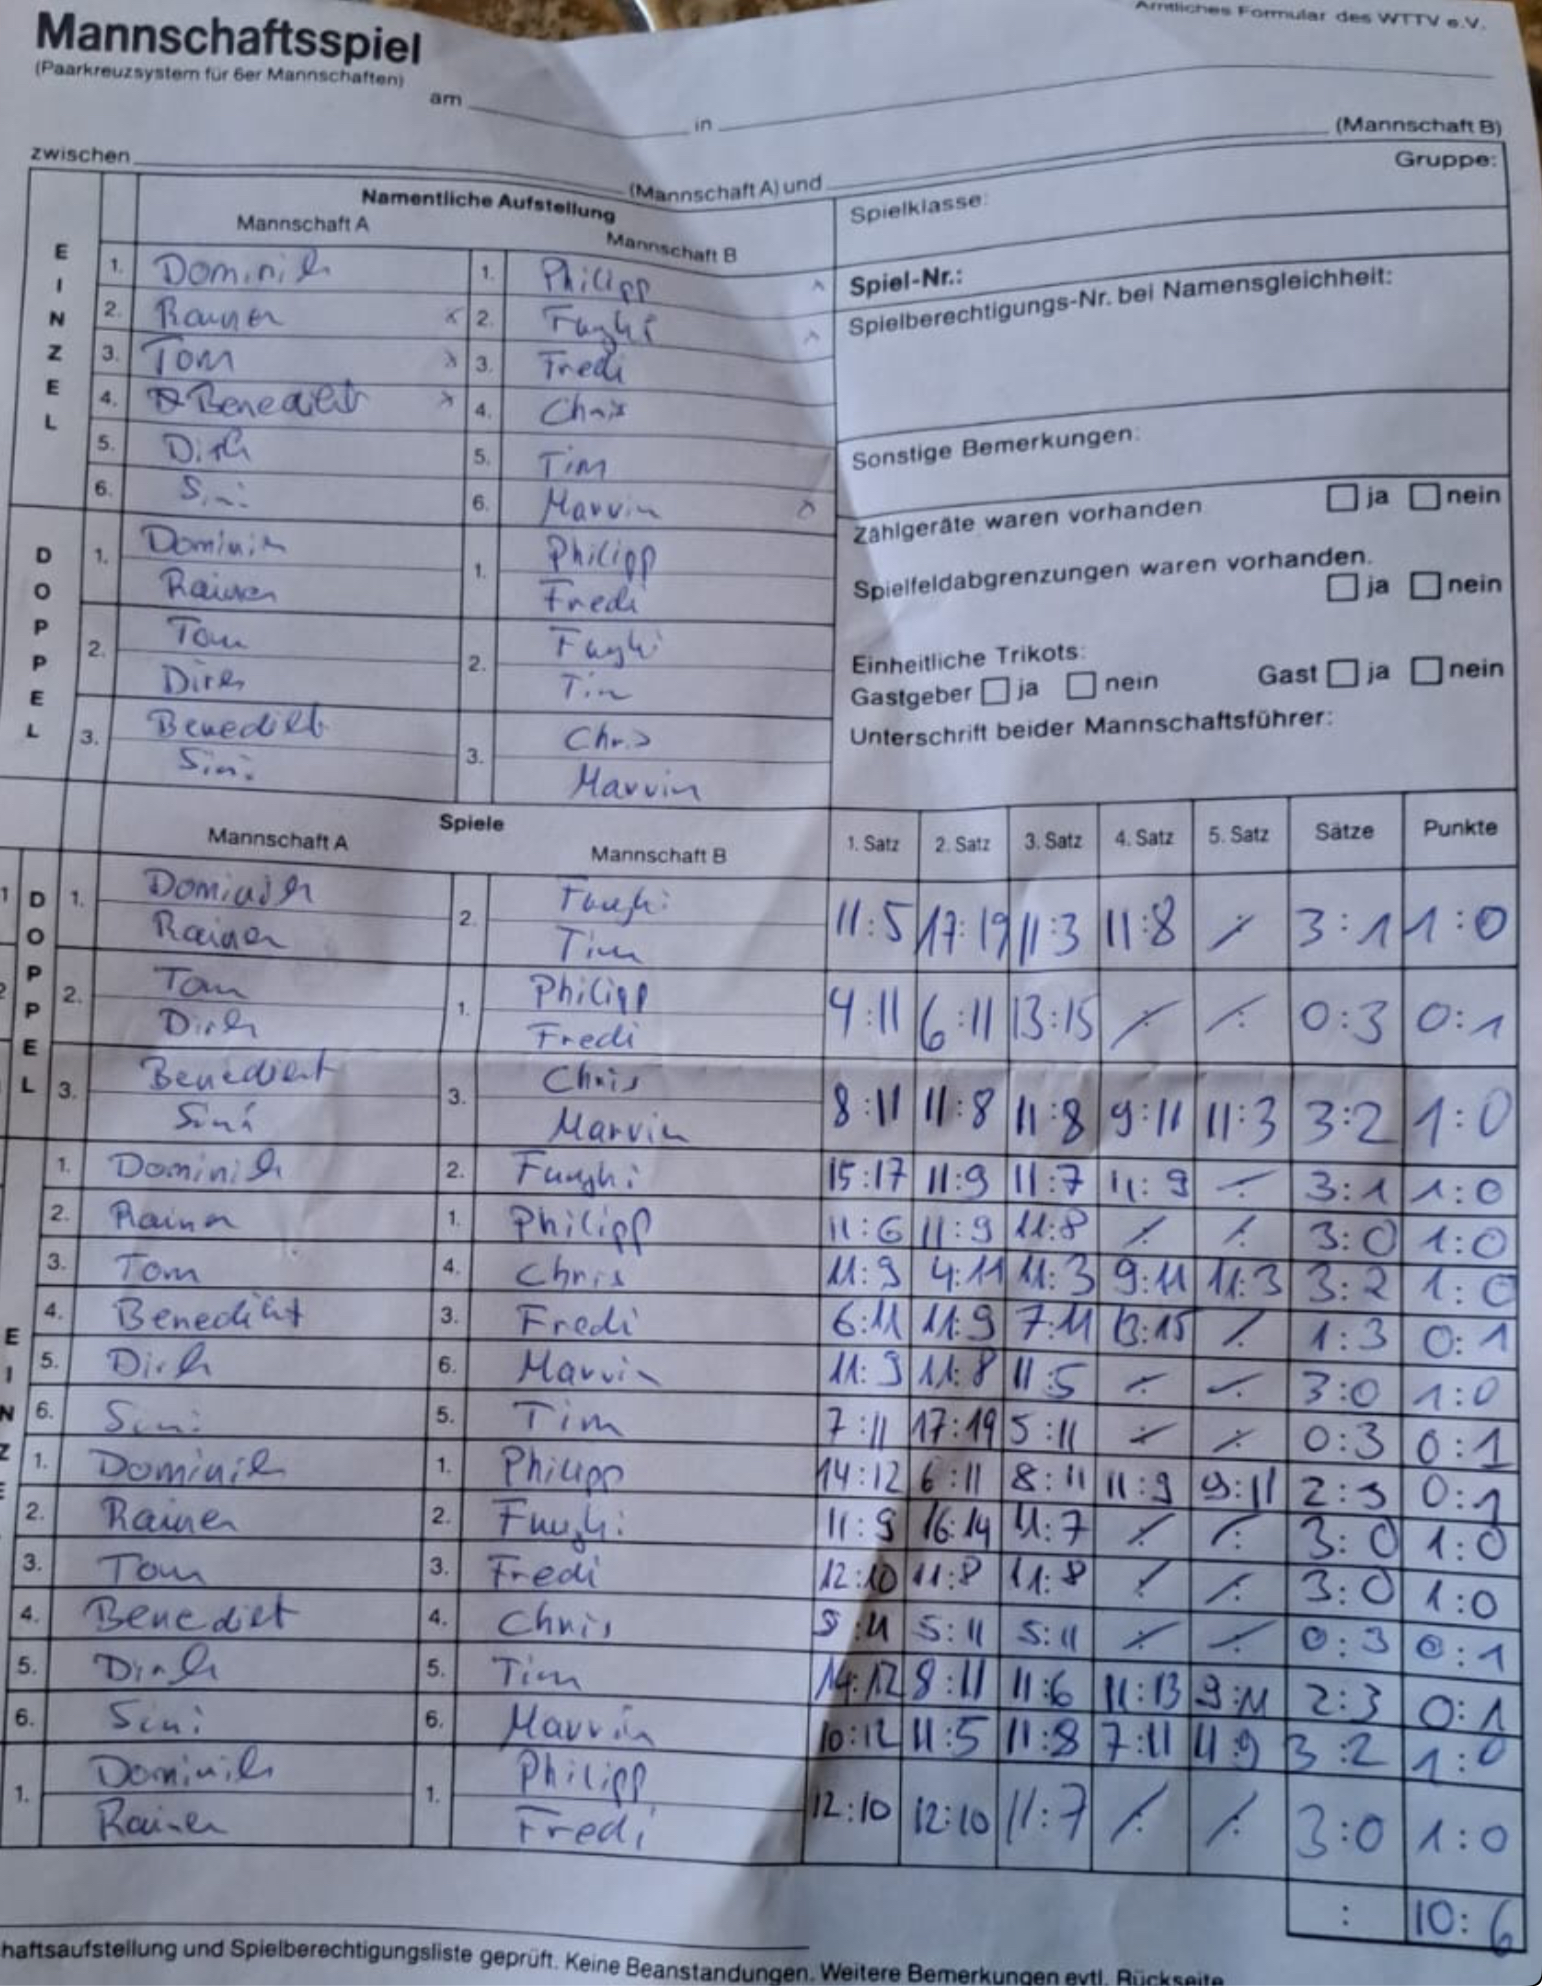 Amtliches Formular des WTTV e.V.
Mannschaftsspiel
(Paarkreuzsystem für 6er Mannschaften)
am in
(Mannschaft B)
zwischen (Mannschaft A) und
Gruppe:
Namentliche Aufstellung
Mannschaft A Mannschaft B
Spielklasse:
EINZEL
1. Dominik 1. Philipp
2. Rainer 2. Funghi
3. Tom 3. Fredi
4. Benedikt 4. Chris
5. Dirk 5. Tim
6. Sini 6. Marvin
Spiel-Nr.:
Spielberechtigungs-Nr. bei Namensgleichheit:
Sonstige Bemerkungen:
Zählgeräte waren vorhanden ja nein
Spielfeldabgrenzungen waren vorhanden.
ja nein
Einheitliche Trikots:
Gastgeber ja nein Gast ja nein
Unterschrift beider Mannschaftsführer:
DOPPEL
1. Dominik 1. Philipp
Rainer Fredi
2. Tom 2. Funghi
Dirk Tim
3. Benedikt 3. Chris
Sini Marvin
Spiele
Mannschaft A Mannschaft B 1. Satz 2. Satz 3. Satz 4. Satz 5. Satz Sätze Punkte
DOPPEL
1. Dominik 2. Funghi 11:5 17:19 11:3 11:8 ⁒ 3:1 1:0
Rainer Tim
2. Tom 1. Philipp 4:11 6:11 13:15 ⁒ ⁒ 0:3 0:1
Dirk Fredi
3. Benedikt 3. Chris 8:11 11:8 11:8 9:11 11:3 3:2 1:0
Sini Marvin
EINZE
1. Dominik 2. Funghi 15:17 11:9 11:7 11:9 ⁒ 3:1 1:0
2. Rainer 1. Philipp 11:6 11:9 11:8 ⁒ ⁒ 3:0 1:0
3. Tom 4. Chris 11:9 4:11 11:3 9:11 11:3 3:2 1:0
4. Benedikt 3. Fredi 6:11 11:9 7:11 13:15 ⁒ 1:3 0:1
5. Dirk 6. Marvin 11:9 11:8 11:5 ⁒ ⁒ 3:0 1:0
6. Sini 5. Tim 7:11 17:19 5:11 ⁒ ⁒ 0:3 0:1
1. Dominik 1. Philipp 14:12 6:11 8:11 11:9 9:11 2:3 0:1
2. Rainer 2. Funghi 11:9 16:14 11:7 ⁒ ⁒ 3:0 1:0
3. Tom 3. Fredi 12:10 11:8 11:8 ⁒ ⁒ 3:0 1:0
4. Benedikt 4. Chris :11 5:11 5:11 ⁒ ⁒ 0:3 0:1
5. Dirk 5. Tim 14:12 8:11 11:6 11:13 9:11 2:3 0:1
6. Sini 6. Marvin 10:12 11:5 11:8 7:11 11:9 3:2 1:0
1. Dominik 1. Philipp 12:10 12:10 11:7 ⁒ ⁒ 3:0 1:0
Rainer Fredi
: 10:6
haftsaufstellung und Spielberechtigungsliste geprüft. Keine Beanstandungen. Weitere Bemerkungen evtl. Rückseite